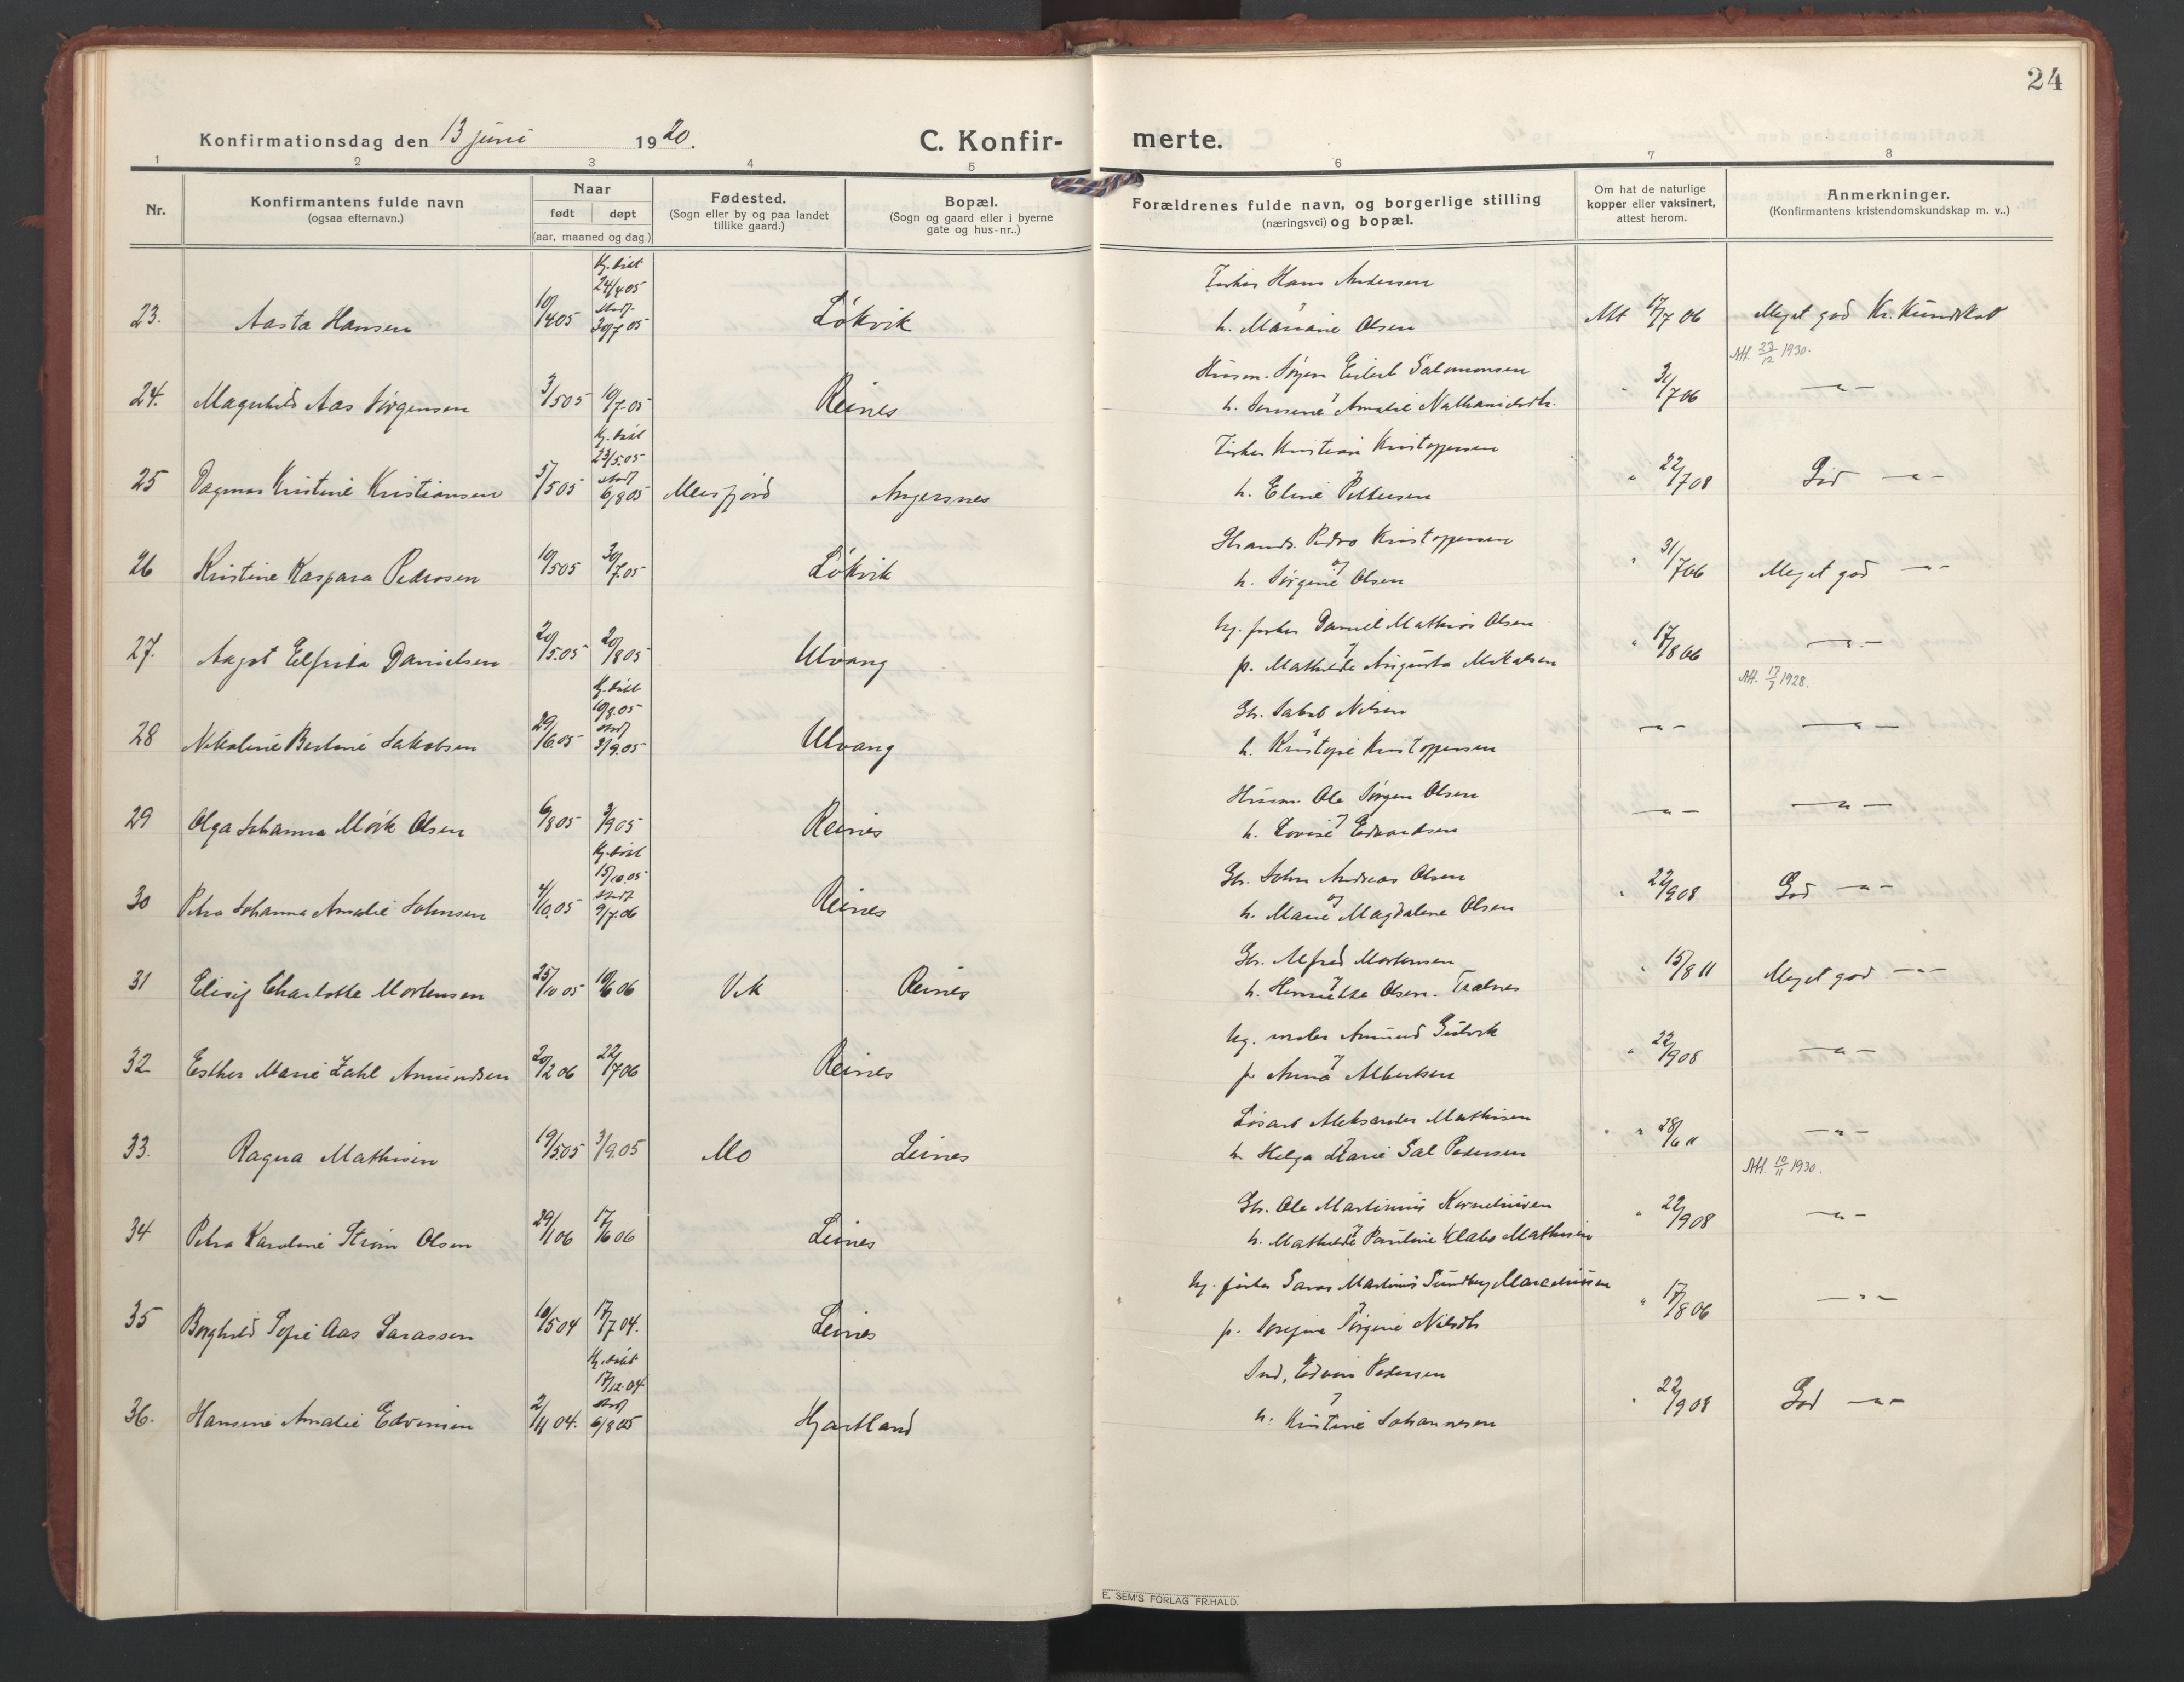 24
Konfirmationsdag den 13 juni 1920.
C. Konfir-
merte.
1 2 3 4 5 6 7 8
Nr.
Konfirmantens fulde navn
(ogsaa efternavn.)
Naar
født døpt
(aar, maaned og dag.)
Fødested.
(Sogn eller by og paa landet
tillike gaard.)
Bopæl.
(Sogn og gaard eller i byerne
gate og hus-nr..)
Forældrenes fulde navn, og borgerlige stilling
(næringsvei) og bopæl.
Om hat de naturlige
kopper eller vaksinert,
attest herom.
Anmerkninger.
(Konfirmantens kristendomskundskap m. v..)
Hj. døbt
24/4 05
stadf.
Fisker Hans Andersen
23. Aasta Hansen 10/4 05 30/7 05 Løkvik
h. Mariane Olsen Att 17/7 06 Meget god Kr. Kundskab
Att. 23/12 1930.
Husm. Jørgen Edvard Salamonsen
24. Magnhild Aas Jørgensen 3/5 05 10/7 05 Reines
h. Amalie Nathanielsdtr. " 31/7 06 —"—
Hj. døbt
23/5 05
stadf
Fisker Kristian Kristoffersen
25 Dagmar Kristine Kristiansen 5/5 05 6/8 05 Meisfjord Angersnes
h. Eline Pettersen " 22/7 08 God —"—
Strands. Pedro Kristoffersen
og
26 Kristine Kaspara Pedrosen 10/5 05 30/7 05 Løkvik
h. Jørgine Olsen " 31/7 06 Meget god —"—
Ug. fisker Daniel Mathias Olsen
27. Aagot Elfrida Danielsen 20/5 05 20/8 05 Ulvang
p. Mathilde Augusta Mikalsen " 17/8 06 —"—
Att. 17/7 1928.
Hj. døbt
10/8 05
stadf
Gbr. Jakob Nilsen
28 Nikoline Berline Jakobsen 29/6 05 3/9 05 Ulvang
h. Kristofie Kristoffersen —"— —"—
Husm. Ole Jørgen Olsen
29 Olga Johanna Mørk Olsen 6/8 05 3/9 05 Reines
h. Lovise Edvardsen —"— —"—
Hj. døbt
15/10 05
stadf
Gbr. John Andreas Olsen
og
30 Petra Johanna Amalie Johnsen 4/10 05 9/7 06 Reines
h. Marie Magdalene Olsen " 22/9 08 God —"—
Gbr. Alfred Mortensen
31 Elisif Charlotte Mortensen 25/10 05 10/6 06 Vik Reines
h. Henriette Olsen. Trælnes " 15/8 11 Meget god —"—
Ug. Amund Gulvik
32 Esther Marie Zahl Amundsen 20/2 06 22/7 06 Reines
p Anna Albertsen " 22/9 08 —"—
Løsarb Aleksander Mathisen
33. Ragna Mathisen 19/5 05 3/9 05 Mo Leines
h. Helga Marie Sal Pedersen " " 28/6 11 —"—
Att. 10/11 1930.
Gbr. Ole Martinus Korneliusen
34 Petra Karoline Strøm Olsen 29/1 06 17/6 06 Leines
h. Mathilde Pauline Klabo Mathisen " 22/9 08 —"—
Ug. fisker Saras Martinus Sundberg Marcelinsen
35 Borghild Sofie Aas Sarassen 10/5 04 17/7 04. Leines
p. Josefine Jørgine Nilsdtr " 17/8 06 —"—
Hj. døbt
17/12 04
stadf
Ind. Edvin Pedersen
36. Hansine Amalie Edvinsen 2/11 04. 6/8 05 Hjartland
h. Kristine Johannesen " 22/9 08 God —"—
E. SEM'S FORLAG FR.HALD.